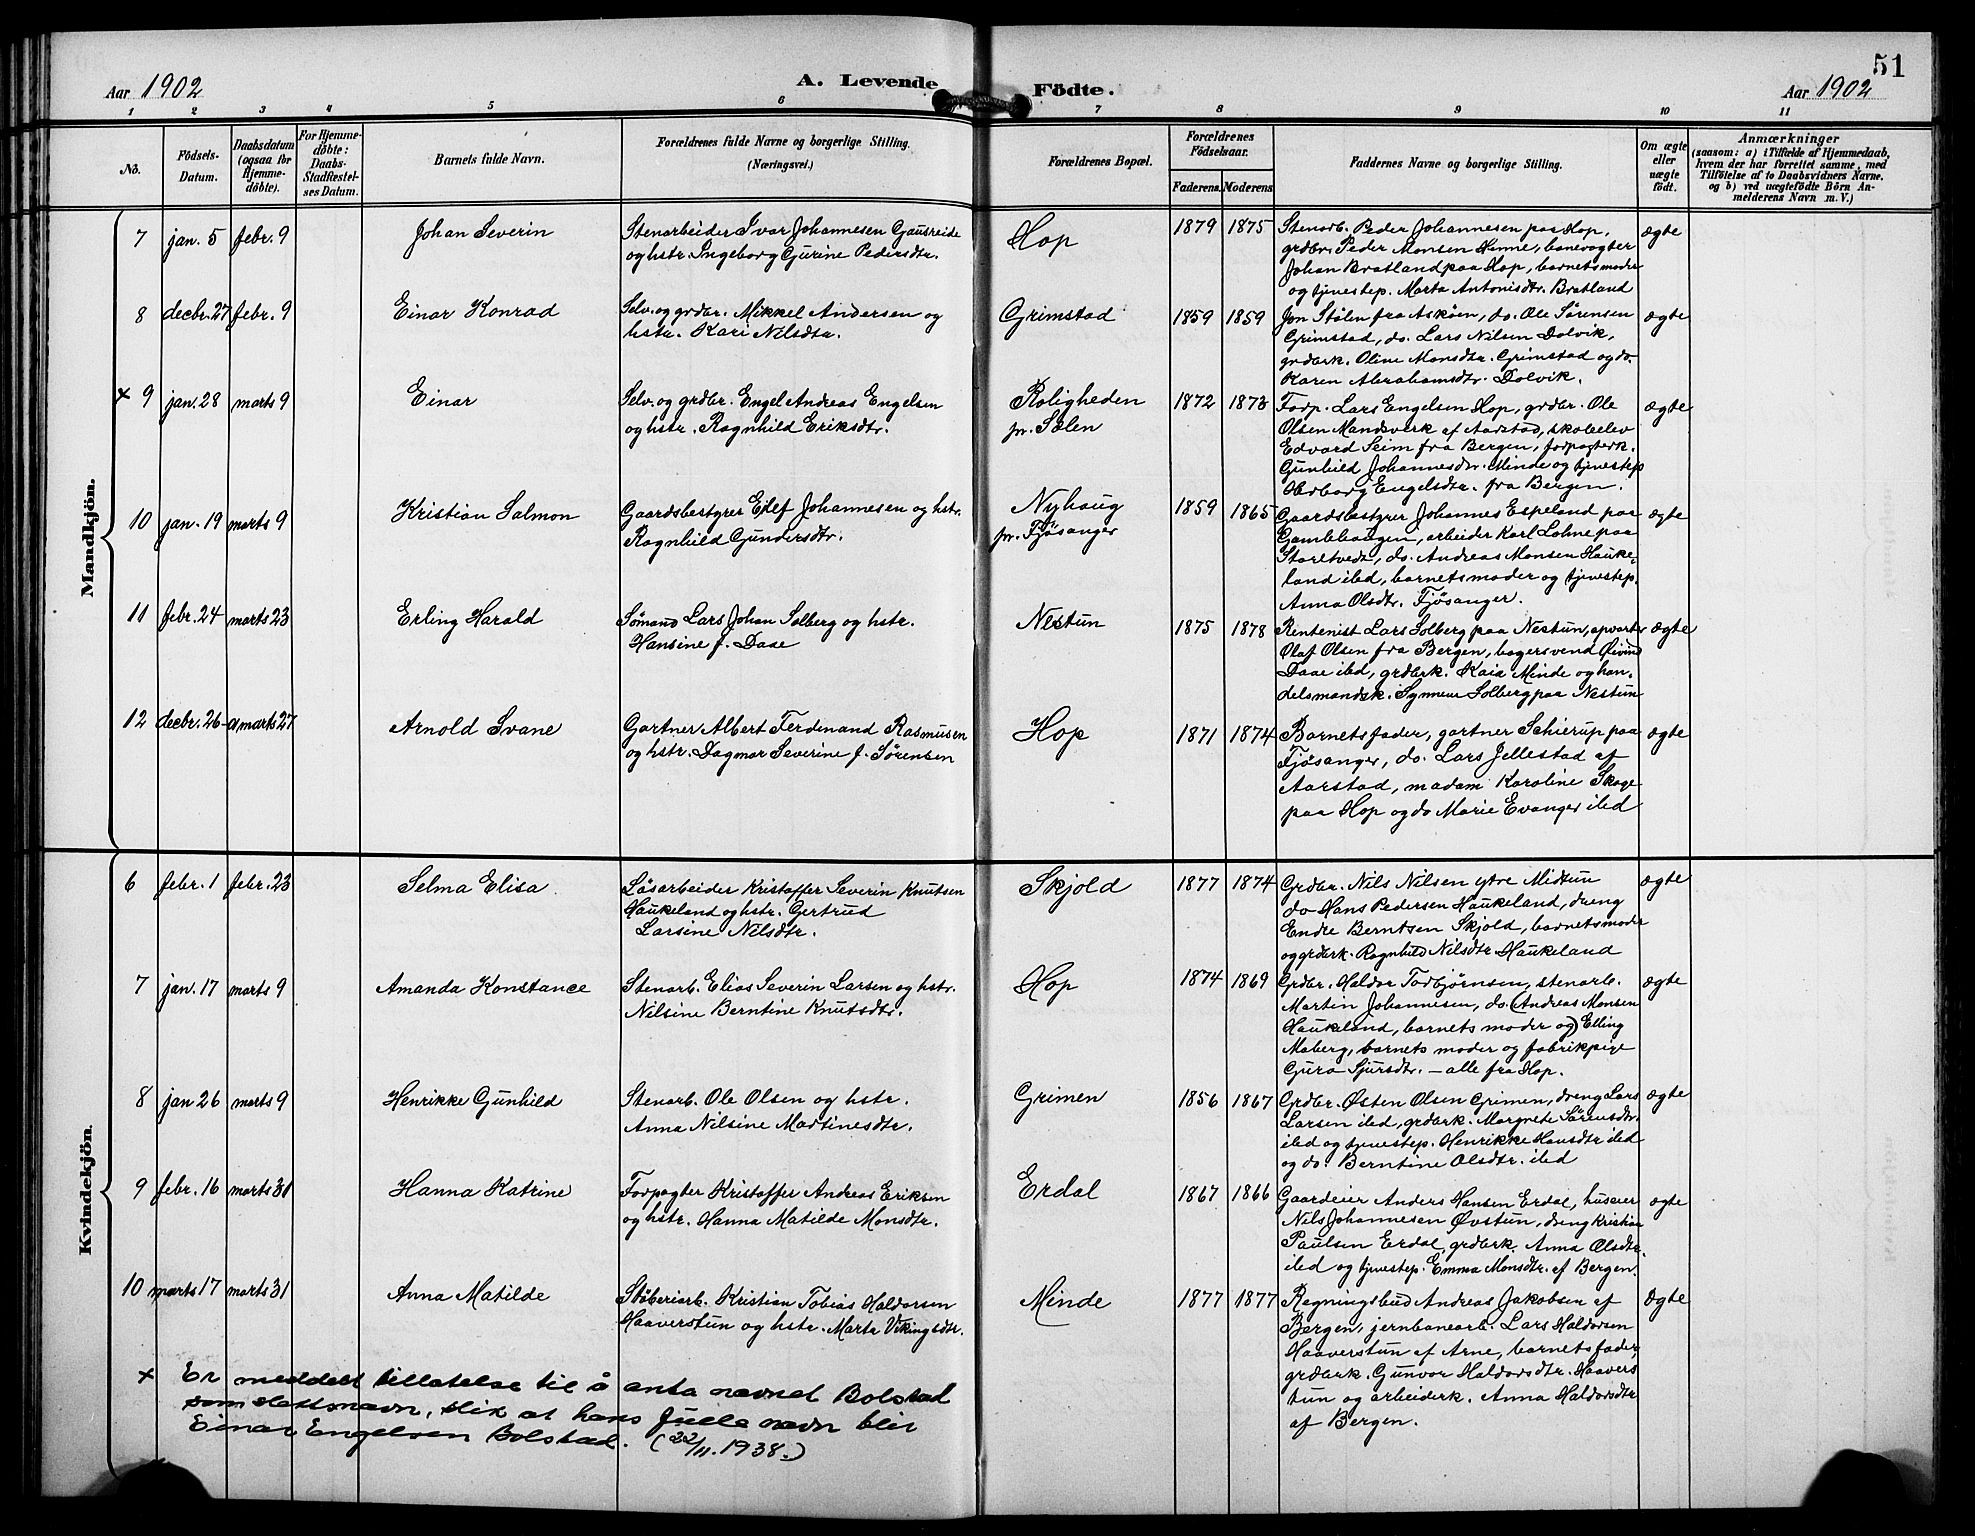 51
Aar 1902
A. Levende
Födte.
Aar 1902
1 2 3 4 5 6 7 8 9 10 11
No.
Födsels-
Datum.
Daabsdatum
(ogsaa for
Hjemme-
döbte).
For Hjemme-
döbte:
Daabs-
Stadfæstel-
ses Datum.
Barnets fulde Navn.
Forældrenes fulde Navne og borgerlige Stilling.
(Næringsvei.)
Forældrenes Bopæl.
Forældrenes
Födselsaar.
Faderens. Moderens
Faddernes Navne og borgerlige Stilling.
Om ægte
eller
uægte
födt.
Anmærkninger
(saasom: a) i Tilfælde af Hjemmedaab,
hvem der har forrettet samme, med
Tilföielse af to Daabsvidners Navne.
og b) ved uægtefödte Börn An-
melderens Navn m. V.)
Mandkjön.
7 jan. 5 febr. 9 Johan Severin
Stenarbeider Ivar Johannesen Gausreide
og hstr. Ingeborg Gurine Pedersdtr.
Hop 1879 1875
Stenarb. Peder Johannesen paa Hop,
grdbr. Peder Monsen Hinne, banevogter
Johan Bratland paa Hop, barnets moder
og tjenestep. Marta Antonisdtr. Bratland
ægte
8 decbr. 27 febr. 9 Einar Konrad
Selv. og grdbr. Mikkel Andersen og
hstr. Kari Nilsdtr.
Grimstad 1859 1859
Jon Stölen fra Asköen, do. Ole Sörensen
Grimstad, do. Lars Nilsen Dolvik,
grdbrk. Oline Monsdtr. Grimstad og do.
Karen Abrahamsdtr. Dolvik.
ægte
x 9 jan. 28 marts 9 Einar
Selv. og grdbr. Engel Andreas Engelsen
og hstr. Ragnhild Eriksdtr.
Roligheden
pr. Sælen
1872 1873
Forp. Lars Engelsen Hop, grdbr. Ole
Olsen Mandsverk af Aarstad, skoleelev
Edvard Seim fra Bergen, forpagterk.
Gunhild Johannesdtr. Minde og tjenestep
Engelsdtr. fra Bergen.
ægte
10 jan. 19 marts 9 Kristian Salmon
Gaardsbestyrer Eilef Johannesen og hstr.
Ragnhild Gundersdtr.
Nyhaug
pr. Fjösanger
1859 1865
Gaardsbestyrer Johannes Espeland paa
Gamlehaugen, arbeider Karl Lohne paa
Storetvedt, do. Andreas Monsen Hauke-
land ibd, barnets moder og tjenestep.
Anna Olsdtr. Fjösanger.
ægte
11 febr. 24 marts 23 Erling Harald
Sömand Lars Johan Solberg og hstr.
Hansine f. Daae
Nestun 1875 1878
Rentenist Lars Solberg paa Nestun, opvarter
Olaf Olsen fra Bergen, bagersvend Öivind
Daae ibd, grdbrk. Kaia Minde og han-
delsmandsk. Synneve Solberg paa Nestun
ægte
12 decbr. 26 -01 marts 27 Arnold Svane
Gartner Albert Ferdinand Rasmusen
og hstr. Dagmar Severine f. Sörensen
Hop 1871 1874
Barnets fader, gartner Schierup paa
Fjösanger, do. Lars Jellestad af
Aarstad, madam Karoline Skage
paa Hop og do Marie Evanger ibd
ægte
Kvindekjön.
6 febr. 1 febr. 23 Selma Elisa
Lösarbeider Kristoffer Severin Knutsen
Haukeland og hstr. Gertrud
Larsine Nilsdtr.
Skjold 1877 1874
Grdbr. Nils Nilsen ytre Midtun
do Hans Pedersen Haukeland, dreng
Endre Berntsen Skjold, barnets moder
og grdbrk. Ragnhild Nilsdtr. Haukeland
ægte
7 jan. 17 marts 9 Amanda Konstance
Stenarb. Elias Severin Larsen og hstr.
Nilsine Berntine Knutsdtr.
Hop 1874 1869
Grdbr. Haldor Torbjørnsen, stenarb.
Martin Johannesen, do. (Andreas Monsen
Haukeland, barnets moder og) Elling
Moberg, barnets moder og fabrikpige
Guro Sjursdtr. - alle fra Hop.
ægte
8 jan 26 marts 9 Henrikke Gunhild
Stenarb. Ole Olsen og hstr.
Anna Nilsine Martinesdtr.
Grimen 1856 1867
Grdbr. Østen Olsen Grimen, dreng Lars
Larsen ibd, grdbrk. Margrete Sörensdtr.
ibd og tjenestep. Henrikke Hansdtr ibd
og do. Berntine Olsdtr. ibd
ægte
9 febr. 16 marts 31 Hanna Katrine
Forpagter Kristoffer Andreas Eriksen
og hstr. Hanna Matilde Monsdtr.
Erdal 1867 1866
Gaardeier Anders Hansen Erdal, huseier
Nils Johannesen Øvstun, dreng Kristian
Paulsen Erdal, grdbrk. Anna Olsdtr.
ibd og tjenestep. Emma Monsdtr. af Bergen.
ægte
10 marts 17 marts 31 Anna Matilde
Stöberiarb. Kristian Tobias Haldorsen
Haaverstun og hstr. Marta Vikingsdtr.
Minde 1877 1877
Regningsbud Andreas Jakobsen af
Bergen, jernbanearb. Lars Haldorsen
Haaverstun af Arne, barnets fader,
grdbrk. Gunvor Haldorsdtr. Haavers
tun og arbeiderk. Anna Haldorsdtr
af Bergen.
ægte
x Er meddelt tillatelse til å anta navnet Bolstad
som slektsnavn, slik at hans fulle navn blir
Einar Engelsen Bolstad. (22/11.1938.)